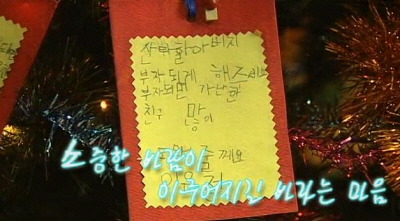 산타할아버지
부자되게 해주세요
부자되면 가난한
친구 많이
줄께요
소중한 바람이
이루어지길 바라는 마음